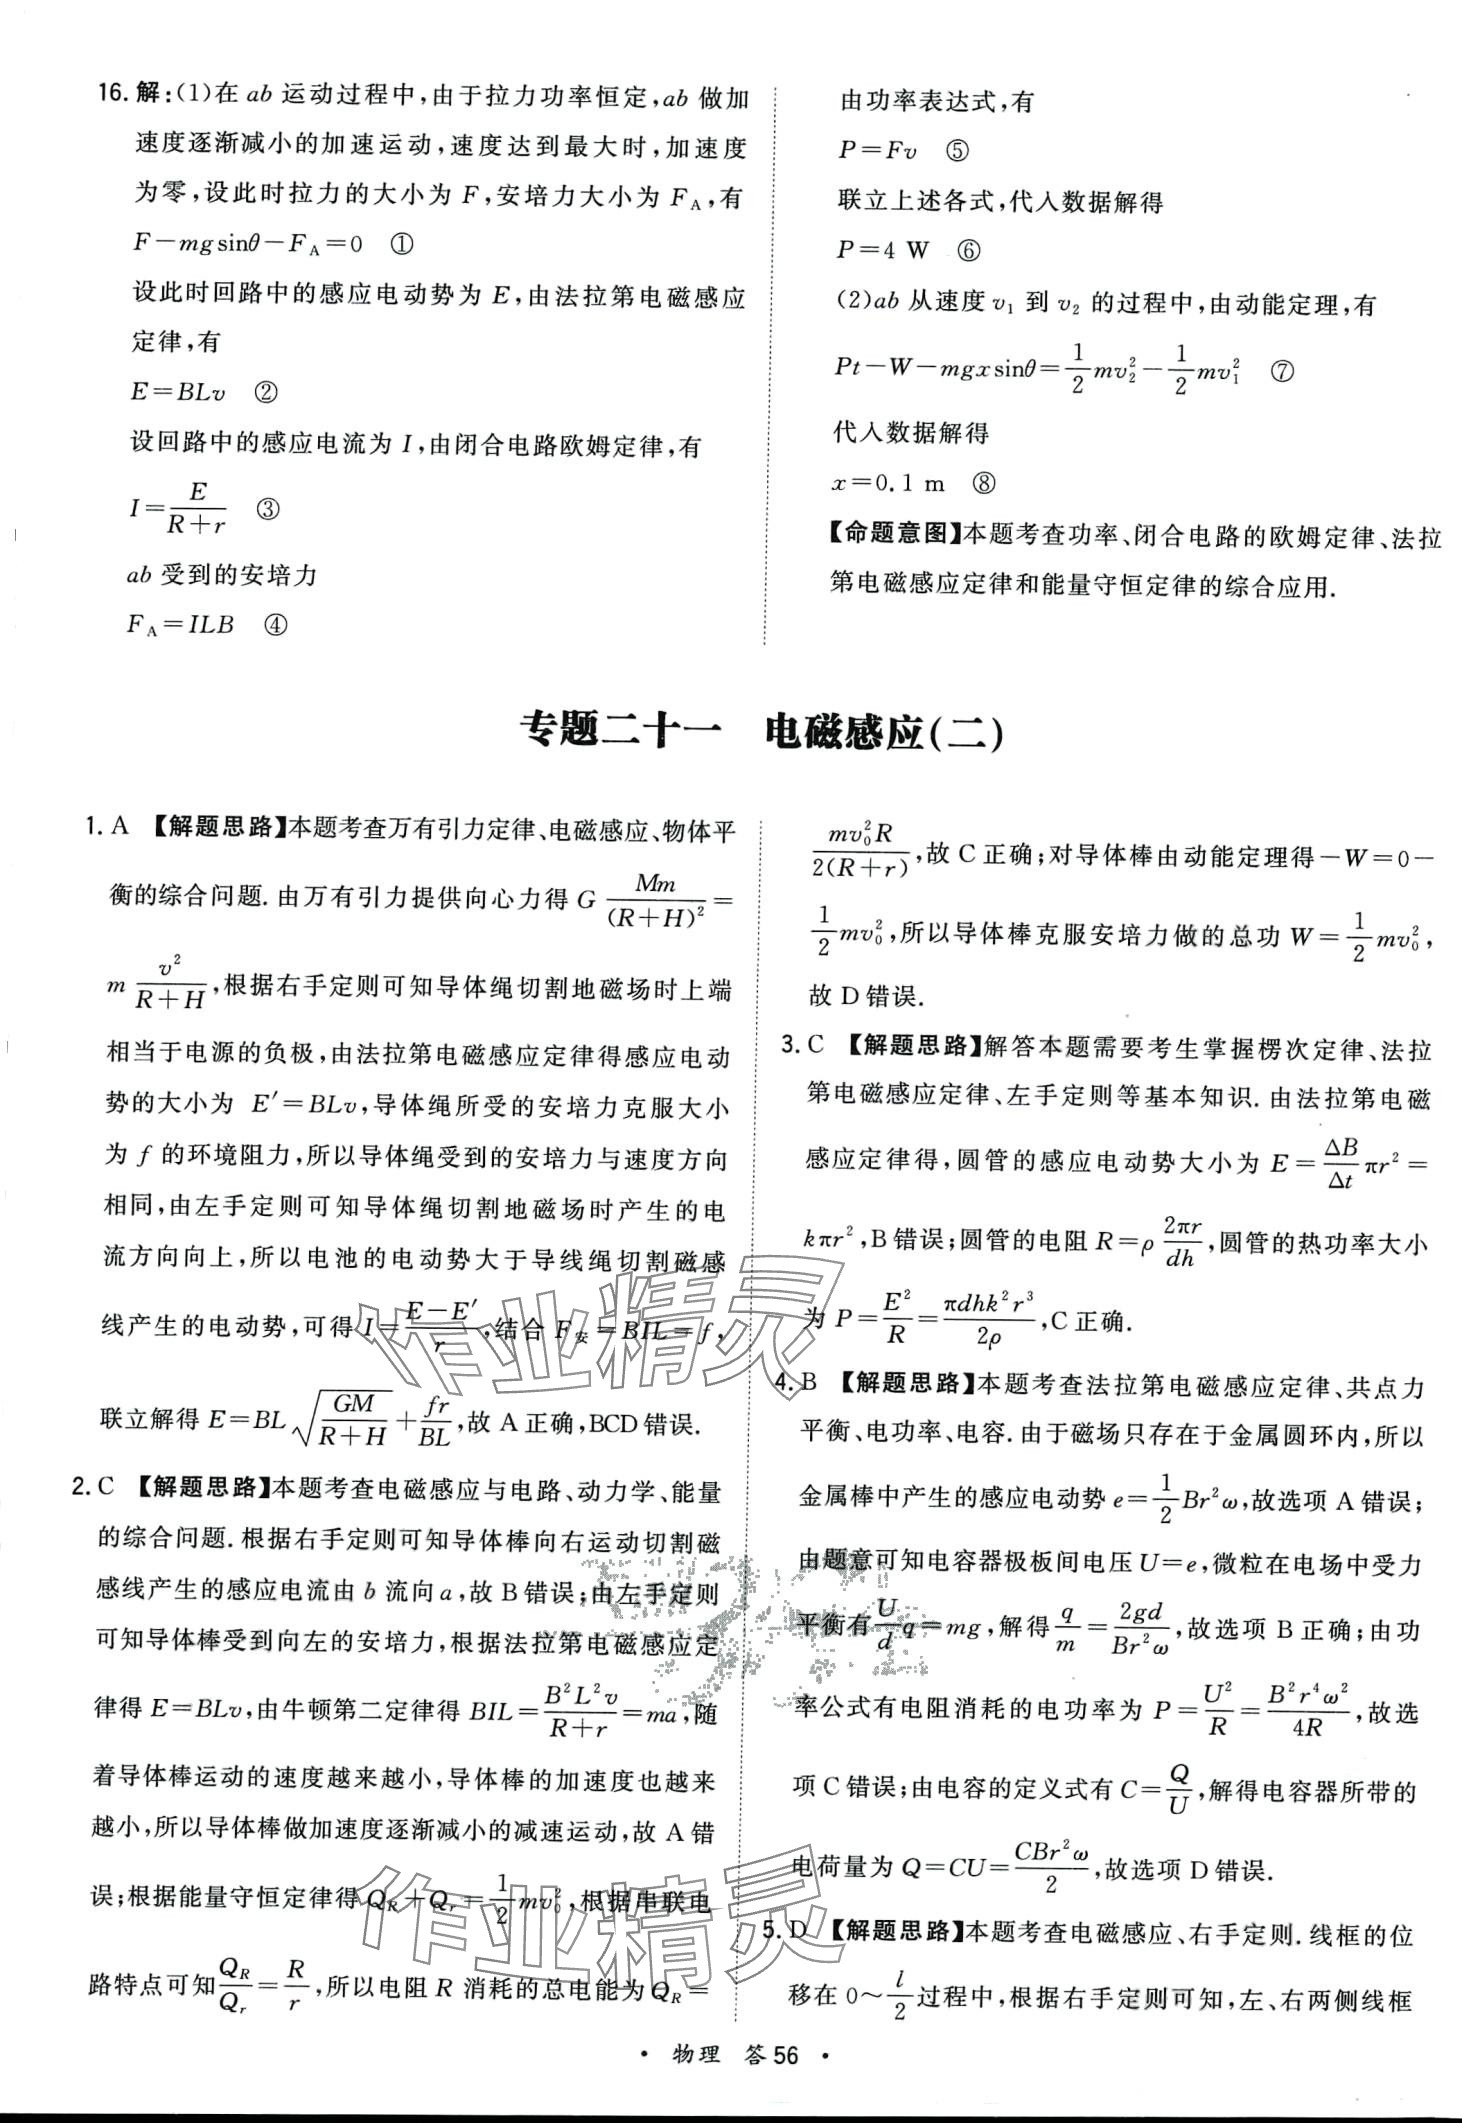 16. 解:(1)在 ab 运动过程中,由于拉力功率恒定,ab 做加
速度逐渐减小的加速运动,速度达到最大时,加速度
为零,设此时拉力的大小为 F,安培力大小为 F_A,有
F-mgsinθ-F_A=0 ①
设此时回路中的感应电动势为 E,由法拉第电磁感应
定律,有
E=BLv ②
设回路中的感应电流为 I,由闭合电路欧姆定律,有
I=E/(R+r) ③
ab 受到的安培力
F_A=ILB ④
由功率表达式,有
P=Fv ⑤
联立上述各式,代入数据解得
P=4 W ⑥
(2)ab 从速度 v₁ 到 v₂ 的过程中,由动能定理,有
Pt-W-mgxsinθ=1/2 mv₂²-1/2 mv₁² ⑦
代入数据解得
x=0.1 m ⑧
【命题意图】本题考查功率、闭合电路的欧姆定律、法拉
第电磁感应定律和能量守恒定律的综合应用.
专题二十一 电磁感应(二)
1. A 【解题思路】本题考查万有引力定律、电磁感应、物体平
衡的综合问题. 由万有引力提供向心力得 G Mm/(R+H)²=
m v²/(R+H),根据右手定则可知导体绳切割地磁场时上端
相当于电源的负极,由法拉第电磁感应定律得感应电动
势的大小为 E′=BLv,导体绳所受的安培力克服大小
为 f 的环境阻力,所以导体绳受到的安培力与速度方向
相同,由左手定则可知导体绳切割地磁场时产生的电
流方向向上,所以电池的电动势大于导线绳切割磁感
线产生的电动势,可得 I=(E-E′)/r,结合 F安=BIL=f,
联立解得 E=BL√(GM/(R+H))+fr/BL,故 A 正确,BCD 错误.
2. C 【解题思路】本题考查电磁感应与电路、动力学、能量
的综合问题. 根据右手定则可知导体棒向右运动切割磁
感线产生的感应电流由 b 流向 a,故 B 错误;由左手定则
可知导体棒受到向左的安培力,根据法拉第电磁感应定
律得 E=BLv,由牛顿第二定律得 BIL=B²L²v/(R+r)=ma,随
着导体棒运动的速度越来越小,导体棒的加速度也越来
越小,所以导体棒做加速度逐渐减小的减速运动,故 A 错
误;根据能量守恒定律得 Q_R+Q_r=1/2 mv₀²,根据串联电
路特点可知 Q_R/Q_r=R/r,所以电阻 R 消耗的总电能为 Q_R=
mv₀²R/2(R+r),故 C 正确;对导体棒由动能定理得 -W=0-
1/2 mv₀²,所以导体棒克服安培力做的总功 W=1/2 mv₀²,
故 D 错误.
3. C 【解题思路】解答本题需要考生掌握楞次定律、法拉
第电磁感应定律、左手定则等基本知识. 由法拉第电磁
感应定律得,圆管的感应电动势大小为 E=ΔB/Δt πr²=
kπr²,B 错误;圆管的电阻 R=ρ 2πr/dh,圆管的热功率大小
为 P=E²/R=πdhk²r³/2ρ,C 正确.
4. B 【解题思路】本题考查法拉第电磁感应定律、共点力
平衡、电功率、电容. 由于磁场只存在于金属圆环内,所以
金属棒中产生的感应电动势 e=1/2 Br²ω,故选项 A 错误;
由题意可知电容器极板间电压 U=e,微粒在电场中受力
平衡有 U/d q=mg,解得 q/m=2gd/Br²ω,故选项 B 正确;由功
率公式有电阻消耗的电功率为 P=U²/R=B²r⁴ω²/4R,故选
项 C 错误;由电容的定义式有 C=Q/U,解得电容器所带的
电荷量为 Q=CU=CBr²ω/2,故选项 D 错误.
5. D 【解题思路】本题考查电磁感应、右手定则. 线框的位
移在 0~l/2 过程中,根据右手定则可知,左、右两侧线框
· 物理 答 56 ·
作业精灵
作业精灵